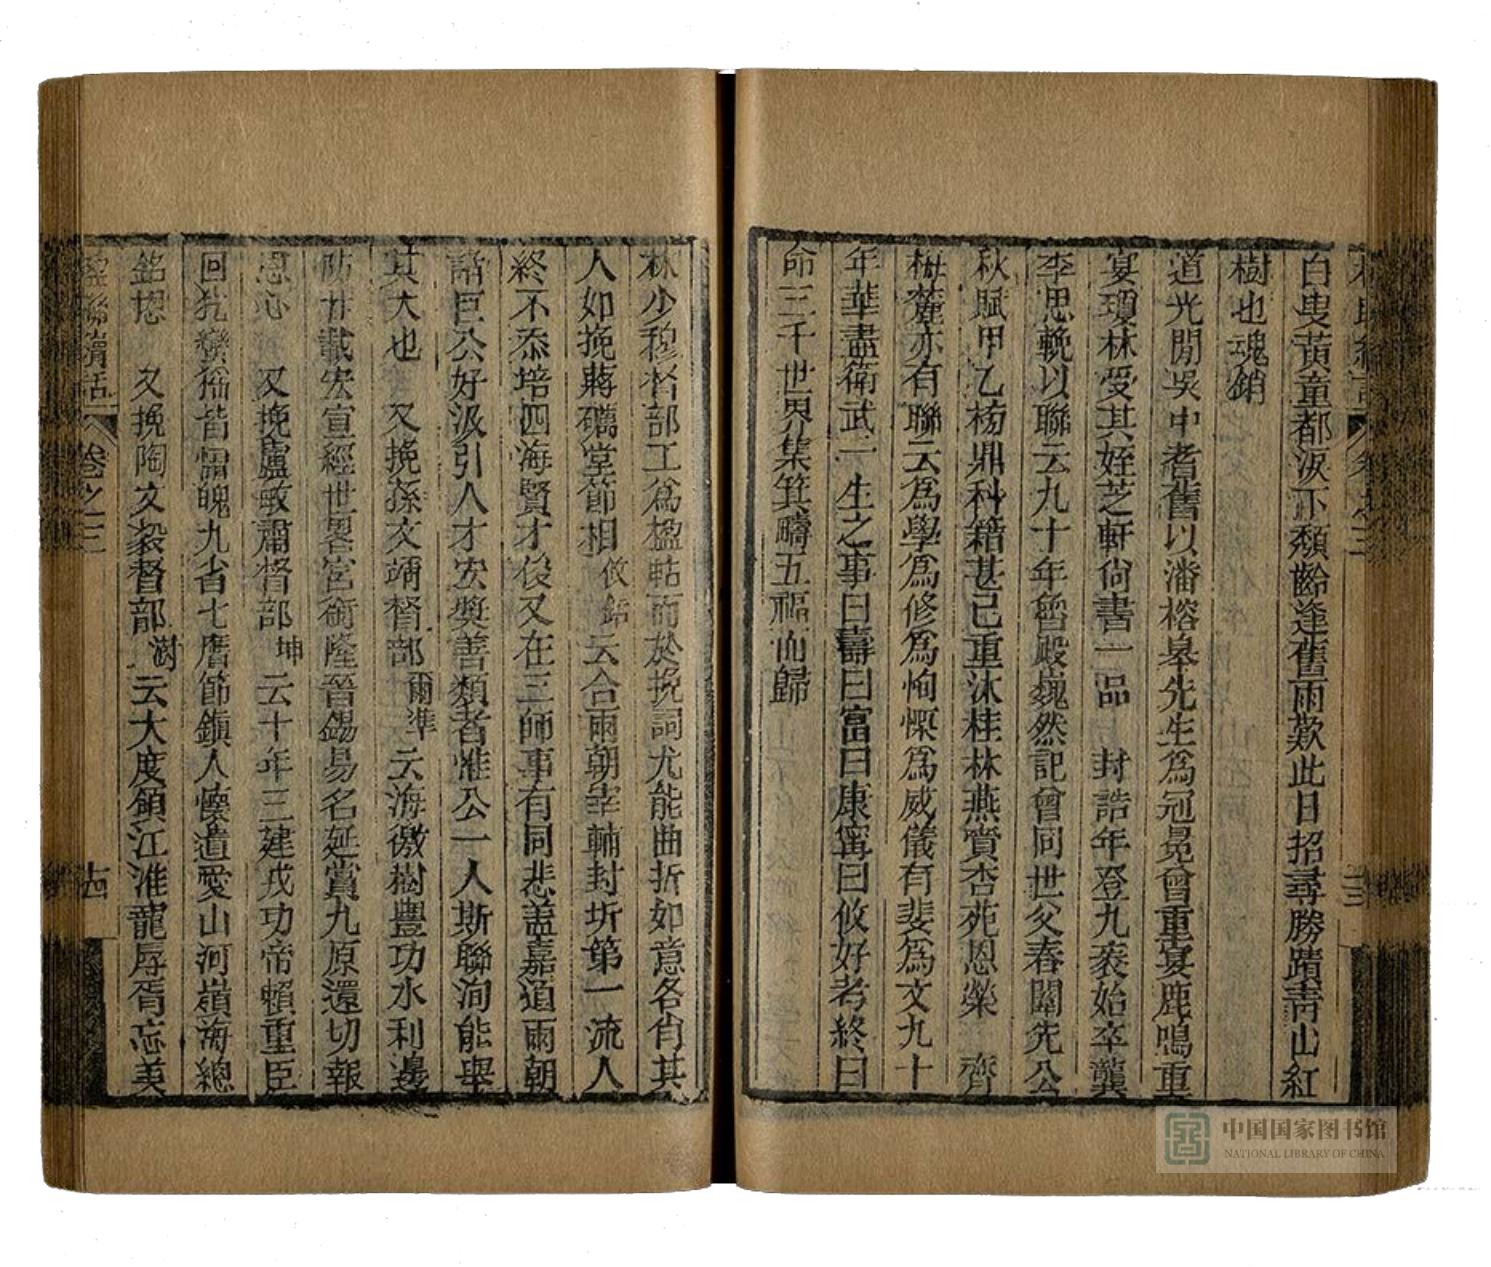 白叟黃童都淚下頹齡逢舊雨歎此日招尋勝蹟靑山紅
樹也魂銷
道光閒吳中耆舊以潘榕皋先生爲冠冕曾重宴鹿鳴重
宴瓊林受其姪芝軒尙書一品 封誥年登九袠始卒龔
李思輓以聯云九十年魯殿巍然記曾同世父春闈先公
秋賦甲乙榜鼎科籍甚已重沐桂林燕賚杏苑恩榮 齊
梅麓亦有聯云爲學爲修爲恂慄爲威儀有斐爲文九十
年華盡衛武一生之事曰壽曰富曰康寗曰攸好考終曰
命三千世界集箕疇五福而歸
林少穆督部工爲楹帖而於挽詞尤能曲折如意各肖其
人如挽蔣礪堂節相攸銛云合兩朝宰輔封圻第一流人
終不忝培四海賢才俊又在三師事有同悲蓋嘉道兩朝
諸巨公好汲引人才宏奬善類者惟公一人斯聯洵能舉
其大也 又挽孫文靖督部爾準云海徼樹豐功水利邊
防廿載宏宣經世畧宮銜隆晉錫易名延賞九原還切報
恩心 又挽盧敏肅督部坤云十年三建戎功帝賴重臣
回犰蠻猺皆慴魄九省七膺節鎭人懷遺愛山河嶺海總
銘恩 又挽陶文毅督部澍云大度領江淮寵辱胥忘美
楹聯續話
卷之三
十四
中国国家图书馆
NATIONAL LIBRARY OF CHINA